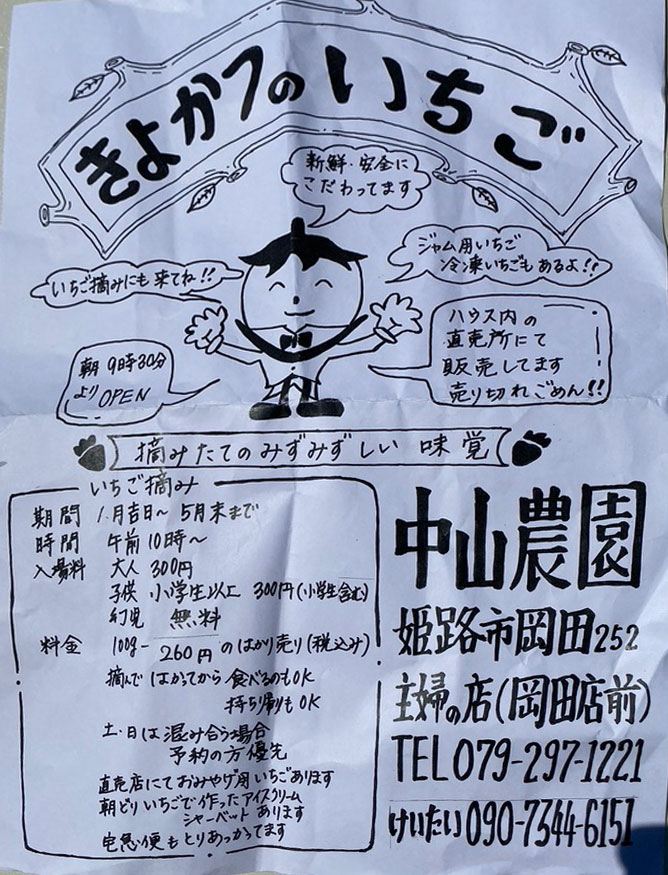 きよかつのいちご
新鮮・安全に
こだわってます
いちご摘みにも来てね!!
ジャム用いちご
冷凍いちごもあるよ!!
朝9時30分
よりOPEN
ハウス内の
直売所にて
販売してます
売り切れごめん!!
摘みたてのみずみずしい味覚
いちご摘み
期間 1月吉日~5月末まで
時間 午前10時~
入場料 大人 300円
子供 小学生以上 300円(小学生含む)
幼児 無料
料金 100g- 260円のはかり売り(税込み)
摘んではかってから食べるのもOK
持ち帰りもOK
土・日は混み合う場合
予約の方優先
直売店にておみやげ用いちごあります
朝どりいちごで作ったアイスクリーム
シャーベットあります
宅急便もとりあつかってます
中山農園
姫路市岡田252
主婦の店(岡田店前)
TEL079-297-1221
けいたい090-7344-6151